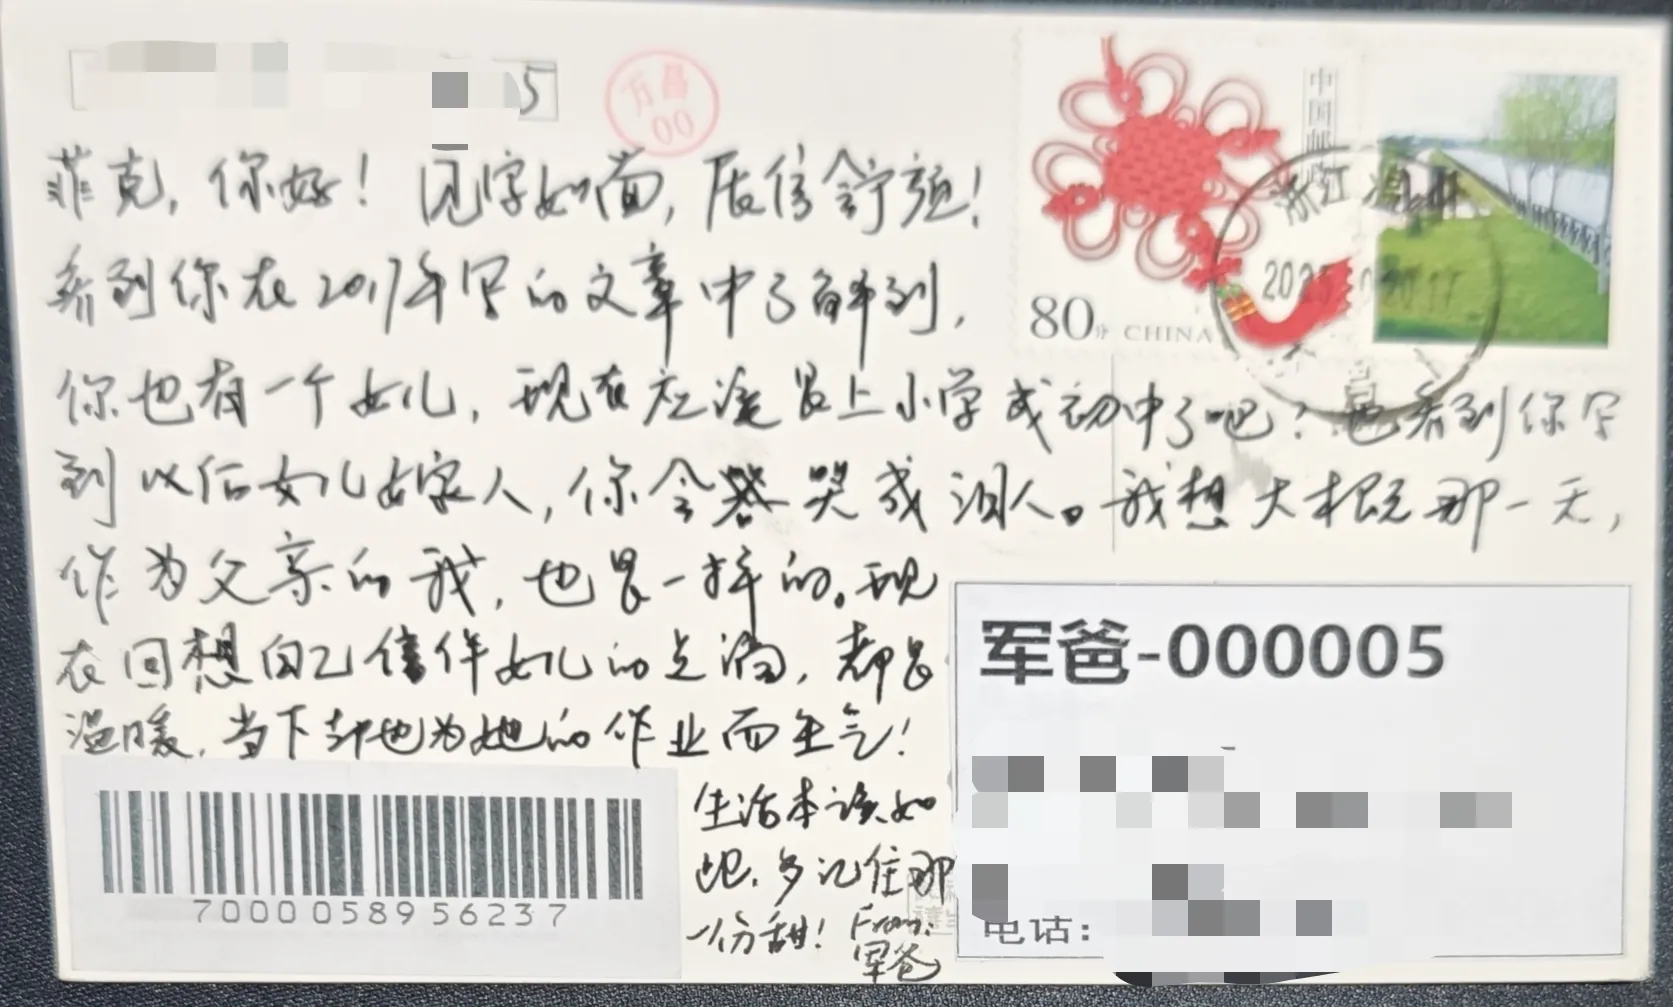 5
万昌
00
中国邮政
80分 CHINA
浙江 温
菲克，你好！见字如面，展信舒颜！
看到你在2017年写的文章中了解到，
你也有一个女儿，现在应该是上小学或初中了吧？也看到你写
到以后女儿嫁人，你会哭成泪人。我想大概那一天，
作为父亲的我，也是一样的。现
在回想自己陪伴女儿的点滴，都是
温暖，当下却也为她的作业而生气！
生活本该如
此，多记住那
一份甜！From：
军爸
军爸-000005
电话：
70000 05895 6237